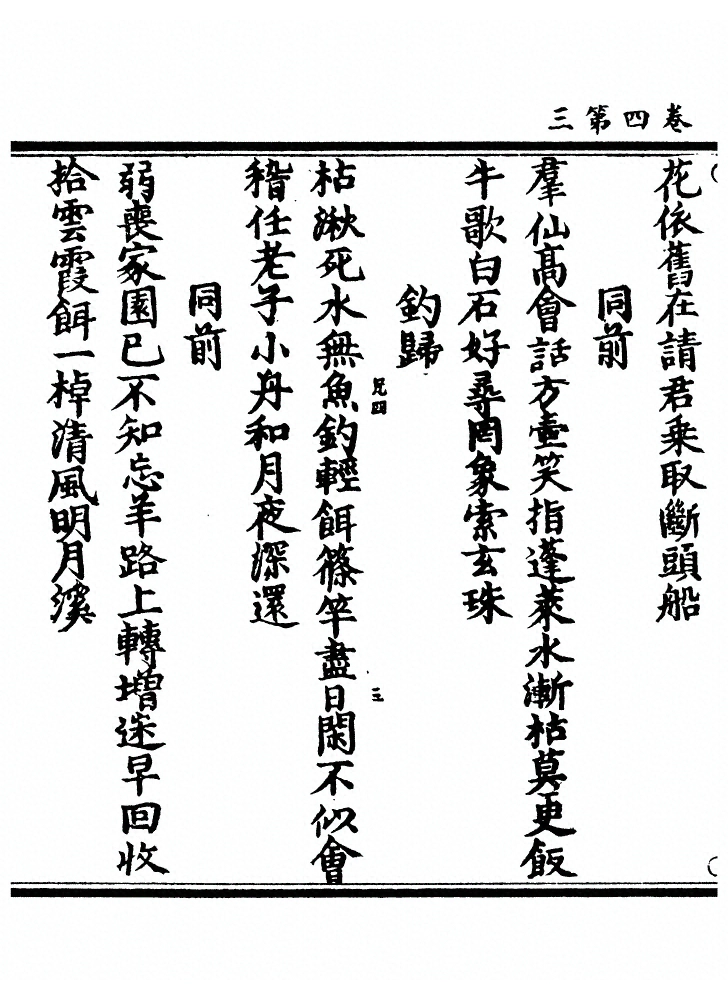 三第四卷
花依舊在請君乗取斷頭船
同前
羣仙高會話方壷笑指蓬萊水漸枯莫更飯
牛歌白石好尋罔象索玄珠
釣歸
枯湫死水無魚釣輕餌篠竿盡日閑不似會
兄四
三
稽任老子小舟和月夜深還
同前
弱喪家園已不知忘羊路上轉增迷早回收
拾雲霞餌一棹清風明月溪